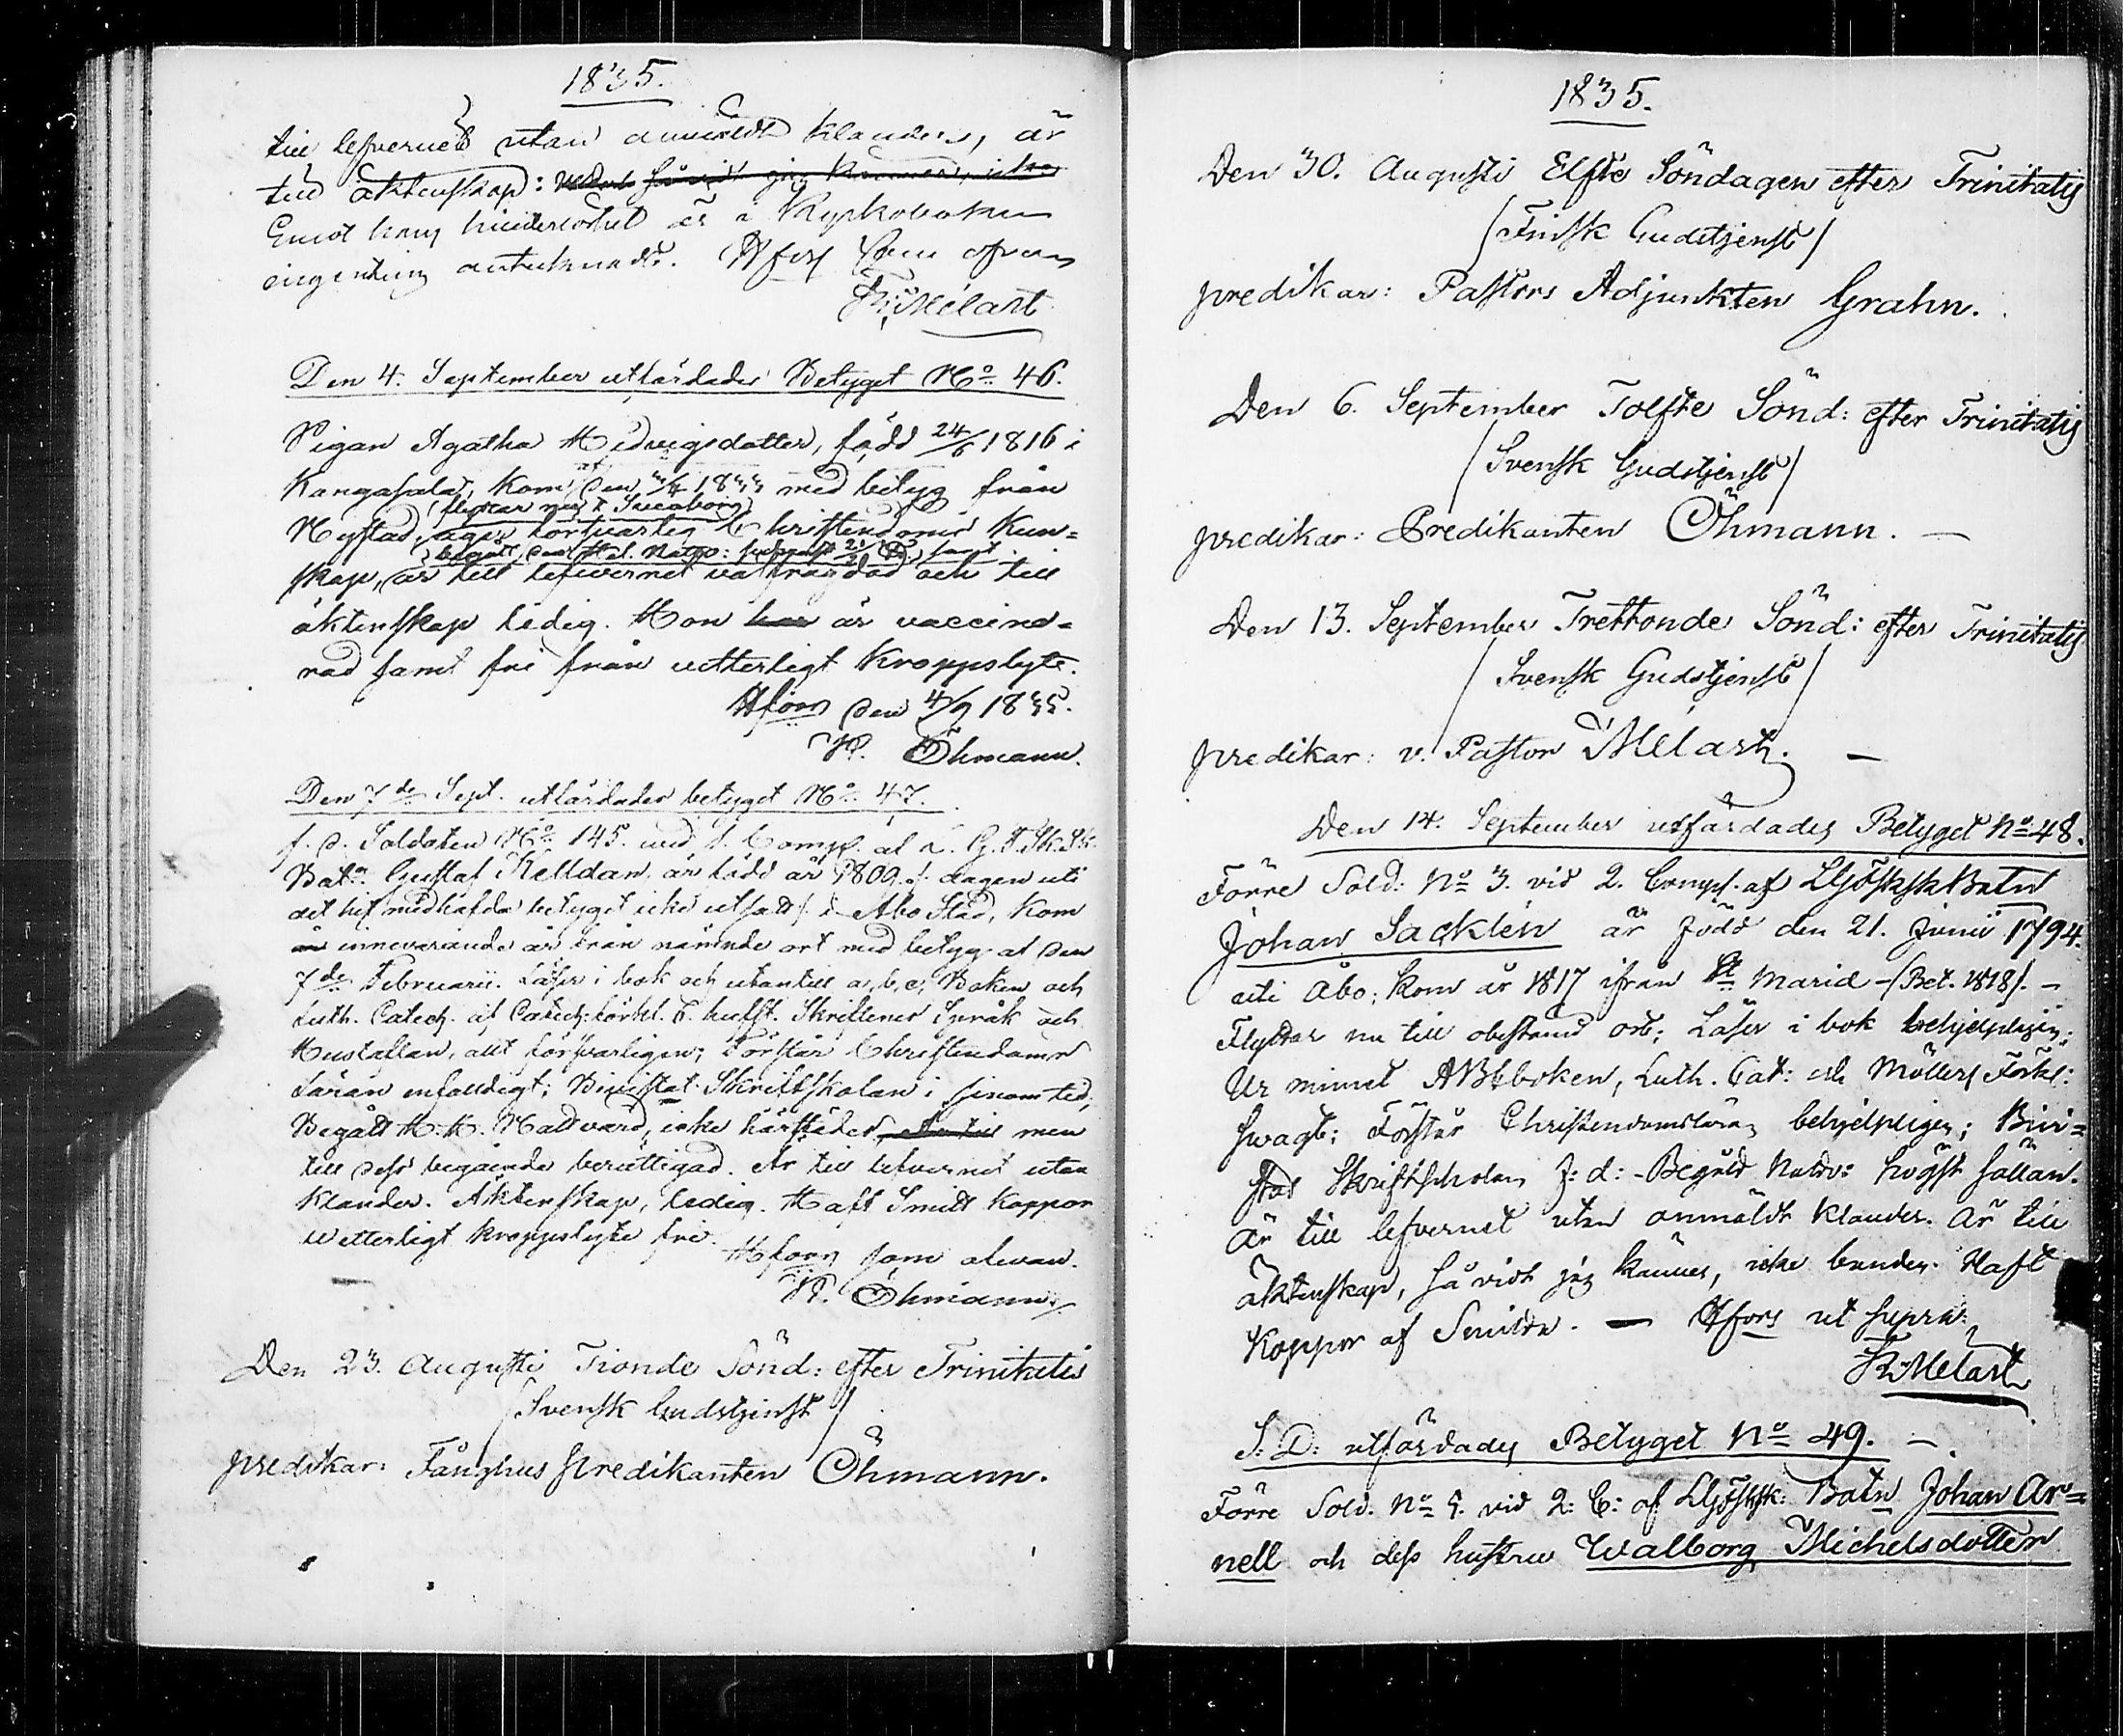 1835.
till lefvernet utan anmäldt klander, är
till äktenskap: så vidt jag känner, icke
Emot hans hinderlöshet är i Kyrkoboken
ingenting antecknadt. Hfors som ofvan
Fr. Melart
Den 4. September utfärdades Betyget No. 46.
Pigan Agatha Hedvigsdotter, född 24/6 1816 i
Kangasala, kom hit den 5/4 1833 med betyg från
(flyttar nu t. Sveaborg)
Nystad, äger försvarlig Christendoms kun=
begått den H. H. Nattv: sednast 21/2 samt
skap, är till lefvernet välfrägdad och till
äktenskap ledig. Hon har är vaccine=
rad samt fri från vetterligt kroppslyte.
Hfors den 4/9 1835.
W. Öhmann.
Den 7de Sept. utfärdades betyget No. 47.
f. d. Soldaten No. 145. wid 1. Comp. af L. G. F. Sk. Sk.
Batn. Gustaf Kelldan, är född år 1809 /: dagen uti
det hit medhafda betyget icke utsatt /: i Åbo Stad, kom
innevarande år från nämnde ort med betyg af den
7de Februarii. Läser i bok och utantill a, b, c, Boken och
Luth. Catech. af Catech. förkl. t. hälft. Skriftenes Språk och
Hustaflan, allt försvarligen; Förstår Christendoms
Läran enfaldigt; Bivistat Skriftskolan i sinom tid,
Begått H. H. Nattvard, icke härstädes men
till dess begående berättigad. Är till lefvernet utan
klander. Äktenskap, ledig. Haft Smitt Koppor
Wetterligt kroppslyte fri.
Hfors som ofwan.
W. Öhmann.
Den 23. Augusti Tionde Sönd: efter Trinitatis
/Svensk Gudstjenst/
predikar: Fånghus predikanten Öhmann.
1835.
Den 30. Augusti Elfte Söndagen efter Trinitatis
/Finsk Gudstjenst/
predikar: Pastors Adjunkten Grahn.
Den 6. September Tolfte Sönd: efter Trinitatis
/Svensk Gudstjenst/
predikar: Predikanten Öhmann. —
Den 13. September Trettonde Sönd: efter Trinitatis
/Svensk Gudstjenst/
predikar: v. Pastor Melart. —
Den 14. September utfärdades Betyget No 48.
Förre Sold: No 3. vid 2. Comp. af LGFSkSk Batn
Johan Sacklén är född den 21. Junii 1794.
uti Åbo; kom år 1817 ifrån St Marie - (Bet. 1818). -
Flyttar nu till obestämd ort; Läser i bok behjelpligen;
Ur minnet ABCboken, Luth. Cat: och Möllers Förkl:
swagt; Förstår Christendomsläran behjelpligen; Bivi=
stat Skriftscholan s: d: - Begått Nattv: högst sällan.
Är till lefvernet utan anmäldt klander. Är till
äktenskap, så vidt jag känner, icke bunden. Haft
Koppor af Smitta. — Hfors ut supra.
Fr. Melart
S. D: utfärdades Betyget No 49. —
Förre Sold. No 5. vid 2: C: af LGFSkSk: Batn Johan Ar=
nell och dess hustru Walborg Michelsdotter